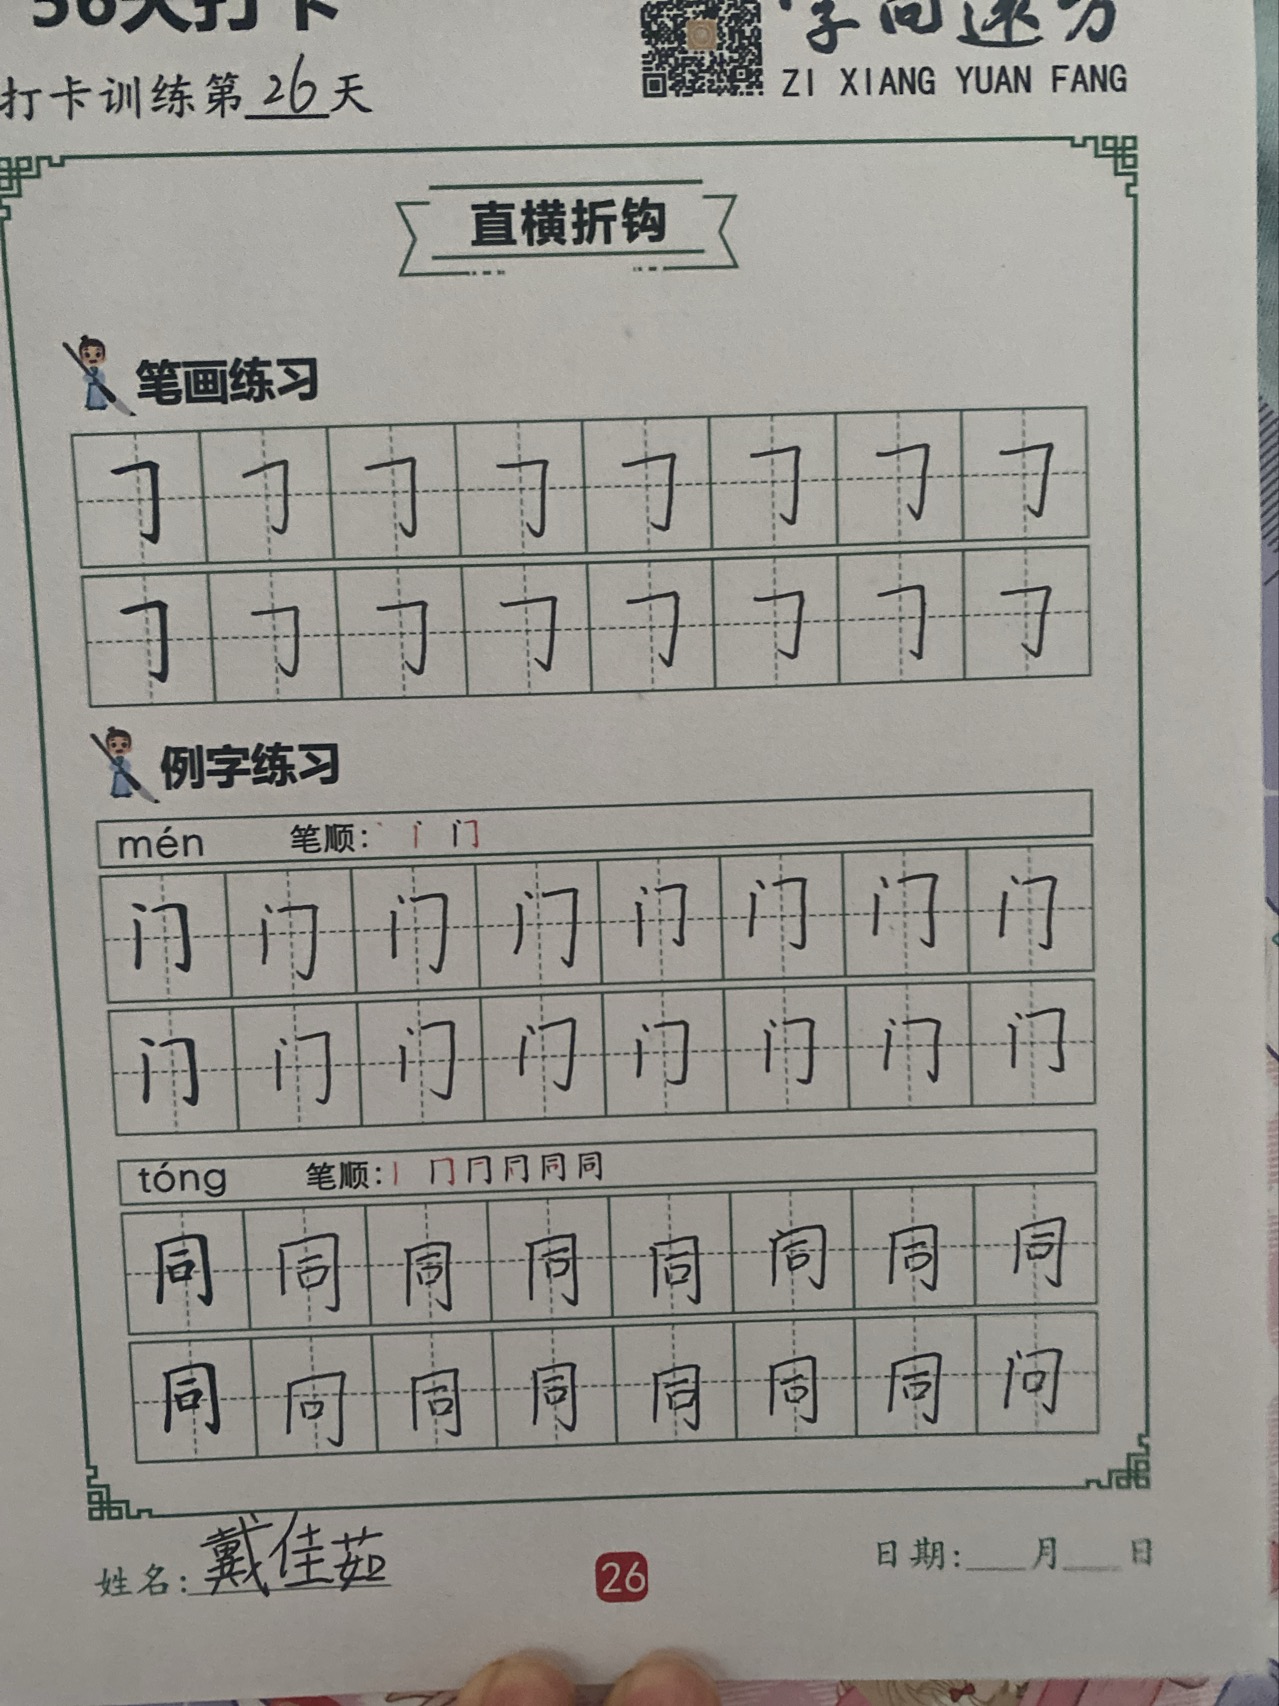 打卡
打卡训练第26天
字向速方
ZI XIANG YUAN FANG
直横折钩
笔画练习
𠃌𠃌𠃌𠃌𠃌𠃌𠃌𠃌
𠃌𠃌𠃌𠃌𠃌𠃌𠃌𠃌
例字练习
mén 笔顺: 丶 门
门门门门门门门门
门门门门门门门门
tóng 笔顺: 丨 冂 同
同同同同同同同同
同冋同同同同同问
姓名: 戴佳茹 26 日期: 月 日